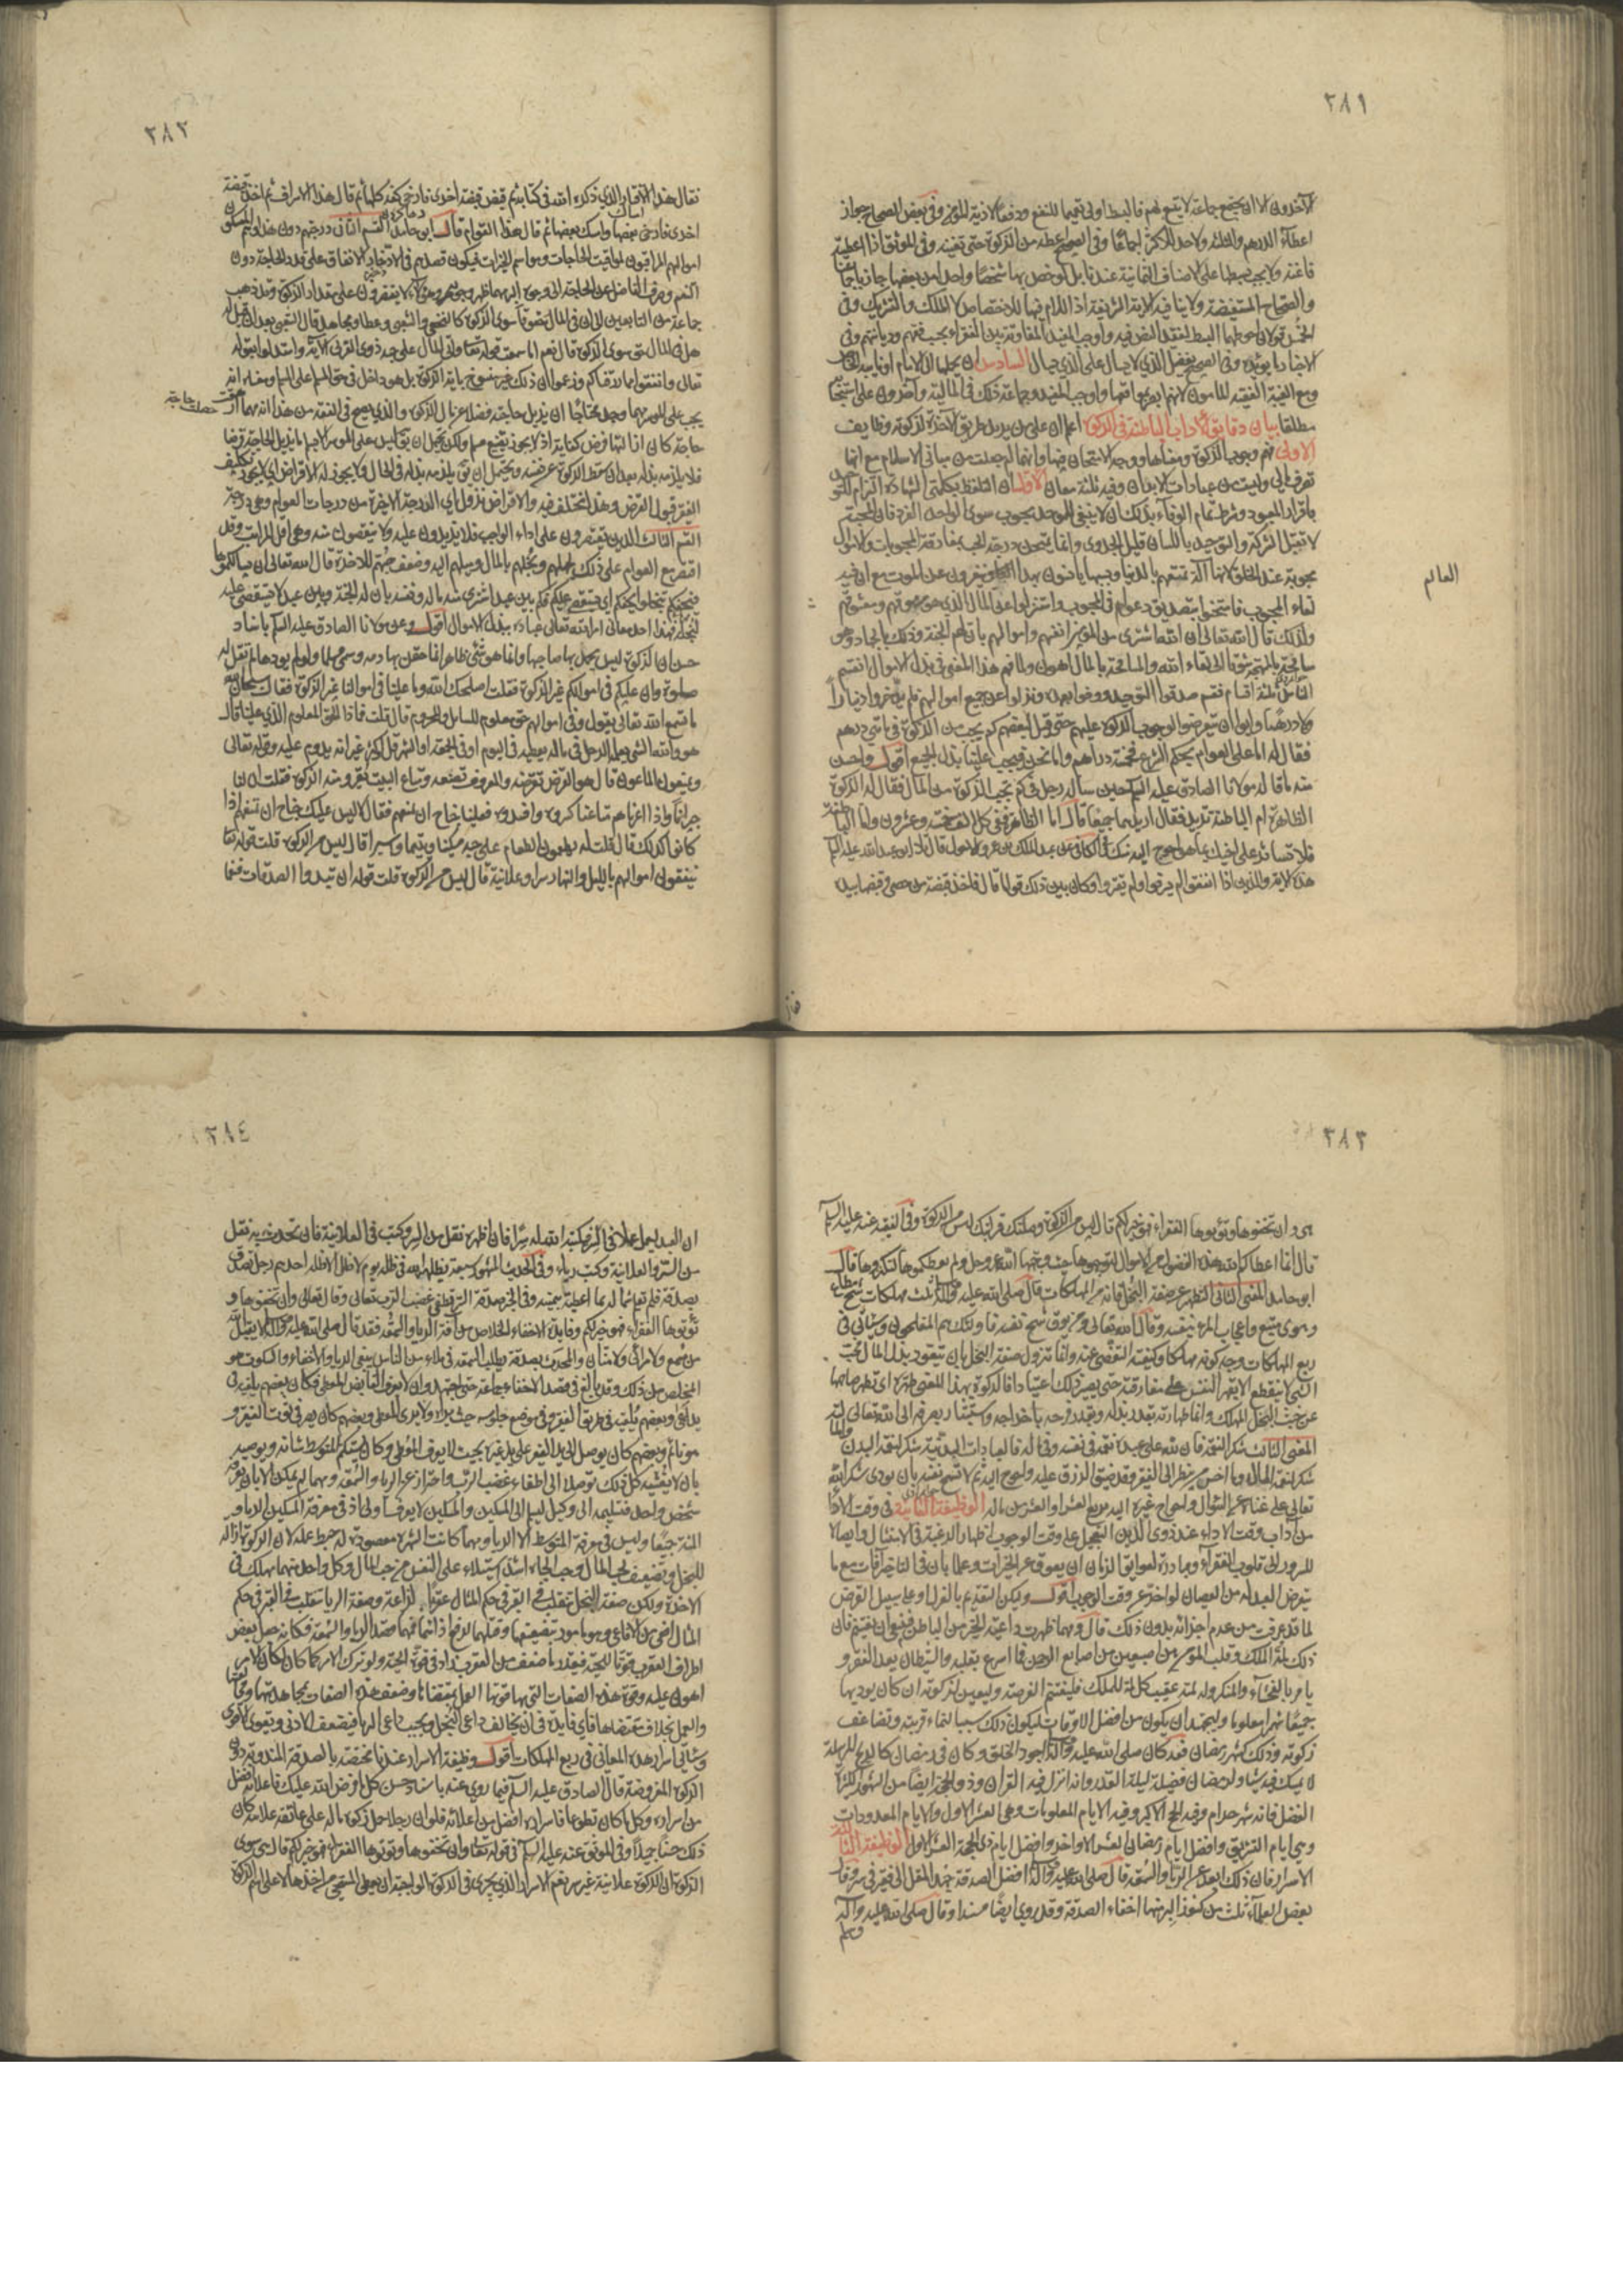 ٢٨١
الآخرون الا ان يجتمع جماعة لا يتسع لهم فالبسط اولى تعميما للنفع ودفعا لاذية المؤمن وفى بعض الصحاح جواز
اعطاء الدرهم والثلثة ولاحد للاكثر اجماعا وفى الصحيح اعطه من الزكوة حتى تغنيه وفى الموثق اذا اعطيته
فاغنه ولا يجب بسطها على الاصناف الثمانية عندنا بل لو خص بها شخصا واحدا من بعضها جاز باجماعنا
والصحاح المستفيضة ولا ينافيه الاية الشريفة اذ اللام فيها للاختصاص لا الملك والتشريك وفى
الخمس قولان احوطهما البسط لفقد النص فيه واوجب المفيد المفاوتة بين الفقراء بحسب فقههم ودياناتهم وفى
الاخبار ما يؤيده وفى الصحيح يفضل الذي لا يسال على الذي يسال السادس ان يحملها الى الامام او نايبه الخاص
ومع الغيبة الفقيه المامون لانهم ابصر بمواقعها واوجب المفيد وجماعة ذلك فى المالية وآخرون على استحبابه
مطلقا بيان دقايق الآداب الباطنة فى الزكوة اعلم ان على من يريد طريق الآخرة لزكوته وظايف
الاولى فهم وجوب الزكوة ومعناها ووجه الامتحان فيها وانها لم جعلت من مبانى الاسلام مع انها
تصرف مالى وليست من عبادات الابدان وفيه ثلثة معان الاول ان التلفظ بكلمتي الشهادة التزام للتوحيد
باقرار المعبود وشرط تمام الوفاء بذلك ان لا يبقى للموحد محبوب سوى الواحد الفرد فان المحبة
لا تقبل الشركة والتوحيد باللسان قليل الجدوى وانما يمتحن درجة الحب بمفارقة المحبوبات والاموال
محبوبة عند الخلق لانها آلة تمتعهم بالدنيا وبسببها يانسون بهذا العالم وينفرون عن الموت مع ان فيه
لقاء المحبوب فامتحنوا بتصديق دعواهم فى المحبوب واستنزلوا عن المال الذي هو مرموقهم ومعشوقهم
ولذلك قال الله تعالى ان الله اشترى من المؤمنين انفسهم واموالهم بان لهم الجنة وذلك بالجهاد وهو
مسامحة بالمهجة شوقا الى لقاء الله والمسامحة بالمال اهون ولما فهم هذا المعنى فى بذل الاموال انقسم
الناس ثلثة اقسام فقسم صدقوا التوحيد ووفوا بعهده ونزلوا عن جميع اموالهم فلم يدخروا دينارا
ولا درهما وابوا ان يتعرضوا لوجوب الزكوة عليهم حتى قيل لبعضهم كم يجب من الزكوة فى مائتي درهم
فقال له اما على العوام بحكم الشرع فخمسة دراهم واما نحن فيجب علينا بذل الجميع اقول واحسن
منه ما قاله مولانا الصادق عليه السلم حين ساله رجل فى كم تجب الزكوة من المال فقال له الزكوة
الظاهرة ام الباطنة تريد فقال اريدهما جميعا قال اما الظاهرة ففى كل الف خمسة وعشرون واما الباطنة
فلا تستاثر على اخيك بما هو احوج اليه منك فى الكافى عن عبد الملك بن عمرو الاحول قال تلا ابو عبد الله عليه السلم
هذه الاية والذين اذا انفقوا لم يسرفوا ولم يقتروا وكان بين ذلك قواما قال فاخذ قبضة من حصى وقبضها بيده
العالم
٢٨٢
فقال هذا الاقتار الذي ذكره الله فى كتابه ثم قبض قبضة اخرى فارخى كفه كلها ثم قال هذا الاسراف ثم اخذ قبضة
اخرى فارخى بعضها وامسك بعضها ثم قال هذا القوام قال ابو حامد القسم الثانى درجتهم دون هذا وهم الممسكون
اموالهم المراقبون لمواقيت الحاجات ومواسم الخيرات فيكون قصدهم فى الادخار الانفاق على قدر الحاجة دون
التنعم وصرف الفاضل عن الحاجة الى وجوه البر مهما ظهر وجوهها وهؤلاء لا يقتصرون على مقدار الزكوة وقد ذهب
جماعة من التابعين الى ان فى المال حقوقا سوى الزكوة كالنخعى والشعبى وعطا ومجاهد قال الشعبى بعد ان قيل له
هل فى المال حق سوى الزكوة قال نعم اما سمعت قوله تعالى واتى المال على حبه ذوى القربى الآية واستدلوا بقوله
تعالى وانفقوا مما رزقناكم وزعموا ان ذلك غير منسوخ باية الزكوة بل هو داخل فى حق المسلم على المسلم ومعناه انه
يجب على الموسر مهما وجد محتاجا ان يزيل حاجته فضلا عن مال الزكوة والذي يصح فى الفقه من هذا انه مهما ارهقت
حاجة كان ازالتها فرض كفاية اذ لا يجوز تضييع مسلم ولكن يحتمل ان يقال ليس على الموسر الا تسليم ما يزيل الحاجة قرضا
فلا يلزمه بذله بعد ان سقط الزكوة عن نفسه ويحتمل ان يقال يلزمه بذله فى الحال ولا يجوز له الاقراض اي لا يجوز تكليف
الفقير قبول القرض وهذا مختلف فيه والاقراض نزول اى الدرجة الاخيرة من درجات العوام وهى درجة
القسم الثالث الذين يقتصرون على اداء الواجب فلا يزيدون عليه ولا ينقصون منه وهى اقل المراتب وقد
اقتصر جميع العوام على ذلك لجهلهم وبخلهم بالمال وميلهم اليه وضعف حبهم للاخرة قال الله تعالى ان يسالكموها
فيحفكم تبخلوا يحفكم اي يستقصى عليكم فكم بين عبد اشترى منه ماله ونفسه بان له الجنة وبين عبد لا يستقصى عليه
لبخله فهذا احد معانى امر الله تعالى عباده ببذل الاموال اقول وعن مولانا الصادق عليه السلم باسناد
حسن ان الزكوة ليس يحمد بها صاحبها وانما هو شئ ظاهر انما حقن بها دمه وسمى مسلما ولو لم يؤدها لم تقبل له
صلوة وان عليكم فى اموالكم غير الزكوة فقلت اصلحك الله وما علينا فى اموالنا غير الزكوة فقال سبحان الله
ما تسمع الله تعالى يقول وفى اموالهم حق معلوم للسايل والمحروم قال قلت فماذا الحق المعلوم الذي علينا قال
هو والله الشئ يعمله الرجل فى ماله يعطيه فى اليوم او فى الجمعة او الشهر قل او كثر غير انه يدوم عليه وقوله تعالى
ويمنعون الماعون قال هو القرض تقرضه والمعروف تصنعه ومتاع البيت تعيره ومنه الزكوة فقلت ان لنا
جيرانا اذا اعرناهم متاعنا كسروه وافسدوه فعلينا جناح ان نمنعهم فقال لا ليس عليك جناح ان تمنعهم اذا
كانوا كذلك قال قلت له ويطعمون الطعام على حبه مسكينا ويتيما واسيرا قال ليس من الزكوة قلت قوله تعالى
ينفقون اموالهم بالليل والنهار سرا وعلانية قال ليس من الزكوة قلت قوله ان تبدوا الصدقات فنعما
٢٨٣
هى وان تخفوها وتؤتوها الفقراء فهو خير لكم قال ليس من الزكوة وصلتك قرابتك ليس من الزكوة وفى الفقيه عنه عليه السلم
قال انما اعطاكم الله هذه الفضول من الاموال لتوجهوها حيث وجهها الله عز وجل ولم يعطكموها لتكنزوها قال
ابو حامد المعنى الثانى التطهر عن صفة البخل فانه من المهلكات قال صلى الله عليه واله ثلث مهلكات شح مطاع
وهوى متبع واعجاب المرء بنفسه وقال الله تعالى ومن يوق شح نفسه فاولئك هم المفلحون وسياتى فى
ربع المهلكات وجه كونه مهلكا وكيفية التفصى عنه وانما تزول صفة البخل بان يتعود بذل المال فحب
الشئ لا ينقطع الا بقهر النفس على مفارقته حتى يصير ذلك اعتيادا فالزكوة بهذا المعنى طهرة اى تطهر صاحبها
عن خبث البخل المهلك وانما طهارته بقدر بذله وبقدر فرحه باخراجه واستبشاره بصرفه الى الله تعالى
المعنى الثالث شكر النعمة فان لله على عبده نعمة فى نفسه وفى ماله فالعبادات البدنية شكر لنعمة البدن والمالية
شكر لنعمة المال وما اخس من ينظر الى الفقير وقد ضيق الرزق عليه واحوج اليه ثم لا تسمح نفسه بان يودى شكر الله
تعالى على غنائه عن السؤال واحواج غيره اليه بربع العشر او العشر من ماله الوظيفة الثانية فى وقت الاداء
من آداب وقت الاداء عند ذوى الدين التعجيل على وقت الوجوب اظهارا للرغبة فى الامتثال وايصالا
للسرور الى قلوب الفقراء ومبادرة لعوايق الزمان ان يعوق عن الخيرات وعلما بان فى التاخير آفات مع ما
يتعرض العبد له من العصيان لو اخر عن وقت الوجوب اقول وليكن التقديم بالعزل او على سبيل القرض
لما قد عرفت من عدم اجزائه بدون ذلك قال ومهما ظهرت داعية الخير من الباطن فينبغى ان يغتنم فان
ذلك لمة الملك وقلب المؤمن بين اصبعين من اصابع الرحمن فما اسرع تقلبه والشيطان يعد الفقر و
يامر بالفحشاء والمنكر وله لمة عقيب كل لمة للملك فليغتنم الفرصة وليعين لزكوته ان كان يوديها
جميعا شهرا معلوما وليجتهد ان يكون من افضل الاوقات ليكون ذلك سببا لنماء قربته وتضاعف
زكوته وذلك كشهر رمضان فقد كان صلى الله عليه واله اجود الخلق وكان فى رمضان كالريح المرسلة
لا يمسك فيه شيئا ولرمضان فضيلة ليلة القدر وانه انزل فيه القران وذو الحجة ايضا من الشهور الكثيرة
الفضل فانه شهر حرام وفيه الحج الاكبر وفيه الايام المعلومات وهى العشر الاول والايام المعدودات
وهى ايام التشريق وافضل ايام رمضان العشر الاواخر وافضل ايام ذى الحجة العشر الاول الوظيفة الثالثة
الاسرار فان ذلك ابعد عن الريا والسمعة قال صلى الله عليه واله افضل الصدقة جهد المقل الى فقير فى سر وقال
بعض العلماء ثلث من كنوز البر منها اخفاء الصدقة وقد روى ايضا مسندا وقال صلى الله عليه واله
وسلم
٢٨٤
ان العبد ليعمل عملا فى السر فيكتبه الله له سرا فان اظهره نقل من السر وكتب فى العلانية فان تحدث به نقل
من السر والعلانية وكتب رياء وفى الحديث المشهور سبعة يظلهم الله فى ظله يوم لا ظل الا ظله احدهم رجل تصدق
بصدقة فلم تعلم شماله بما اعطت يمينه وفى الخبر صدقة السر تطفئ غضب الرب تعالى وقال تعالى وان تخفوها و
تؤتوها الفقراء فهو خير لكم وفايدة الاخفاء الخلاص من آفة الريا والسمعة فقد قال صلى الله عليه واله لا يقبل الله
من مسمع ولا مرائى ولا منان والمتحدث بصدقة يطلب السمعة فى ملاء من الناس يبغى الريا والاخفاء والسكوت هو
المخلص من ذلك وقد بالغ فى قصد الاخفاء جماعة حتى اجتهدوا ان لا يعرف القابض المعطى فكان بعضهم يلقيه فى
يد اعمى وبعضهم يلقيه فى طريق الفقير وفى موضع جلوسه حيث يراه ولا يرى المعطى وبعضهم كان يصر فى ثوب الفقير و
هو نائم وبعضهم كان يوصل الى يد الفقير على يد غيره بحيث لا يعرف المعطى وكان يستكتم المتوسط شانه ويوصيه
بان لا يفشيه كل ذلك توصلا الى اطفاء غضب الرب واحترازا من الريا والسمعة ومهما لم يمكن الا بان يعرفه
شخص واحد فتسليمه الى وكيل ليسلم الى المسكين والمسكين لا يعرف اولى اذ فى معرفة المسكين الريا و
المنة جميعا وليس فى معرفة المتوسط الا الريا ومهما كانت الشهرة مقصودة له حبط عمله لان الزكوة ازالة
للبخل وتضعيف لحب المال وحب الجاه اشد استيلاء على النفس من حب المال وكل واحد منهما مهلك فى
الاخرة ولكن صفة البخل تنقلب فى القبر فى حكم المثال عقربا لداغة وصفة الريا تنقلب فى القبر فى حكم
المثال افعى من الافاعى وهو مامور بتضعيفهما وقتلهما لدفع اذاهما فمهما قصد الريا والسمعة فكانه جعل بعض
اطراف العقرب قوتا للحية فبقدر ما ضعف من العقرب زاد فى قوة الحية ولو ترك الامر كما كان لكان الامر
اهون عليه وقوة هذه الصفات التى بها قوتها العمل بمقتضاها وضعف هذه الصفات بمجاهدتها ومخالفتها
والعمل بخلاف مقتضاها فاي فايدة فى ان يخالف داعى البخل ويجيب داعى الريا فيضعف الادنى ويقوى الاقوى
وسياتى اسرار هذه المعانى فى ربع المهلكات اقول وظيفة الاسرار عندنا مختصة بالصدقة المندوبة دون
الزكوة المفروضة قال الصادق عليه السلم فيما روى عنه باسناد حسن كل ما فرض الله عليك فاعلانه افضل
من اسراره وكل ما كان تطوعا فاسراره افضل من اعلانه فلو ان رجلا حمل زكوة ماله على عاتقه علانية كان
ذلك حسنا جميلا وفى الموثق عنه عليه السلم فى قوله تعالى وان تخفوها وتؤتوها الفقراء فهو خير لكم قال هى سوى
الزكوة ان الزكوة علانية غير سر نعم الاسرار الذي يجرى فى الزكوة الواجبة ان يعطى المستحيى من اخذها لا على اسم الزكوة